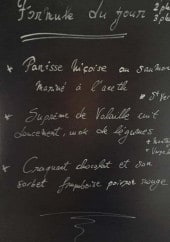 Formule du jour
2 pl
3 pl
* Panisse Niçoise ou saumon
mariné à l'aneth
* St Ver
* Suprême de Volaille cuit
doucement, wok de légumes
* Craquant chocolat et son
sorbet framboise poivron rouge